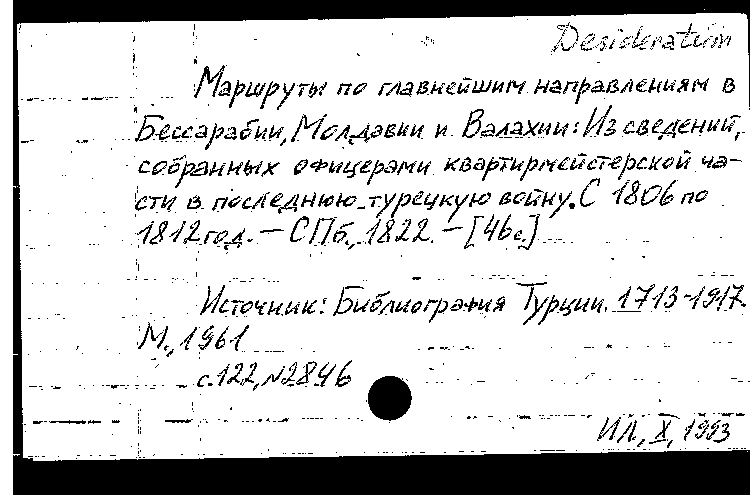 Desideratum
Маршруты по главнейшим направлениям в
Бессарабии, Молдавии и Валахии: Из сведений,
собранных офицерами квартирмейстерской ча-
сти в последнюю турецкую войну. С 1806 по
1812 год. – СПб., 1822. – [46 с.]
Источник: Библиография Турции. 1713-1917.
М., 1961
с.122, №2846
ИЛ, X, 1993